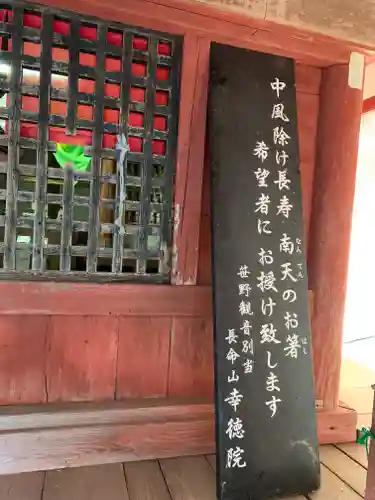 中風除け長寿 南天のお箸
なんてん
はし
希望者に お授け致します
笹野観音別当
長命山 幸徳院